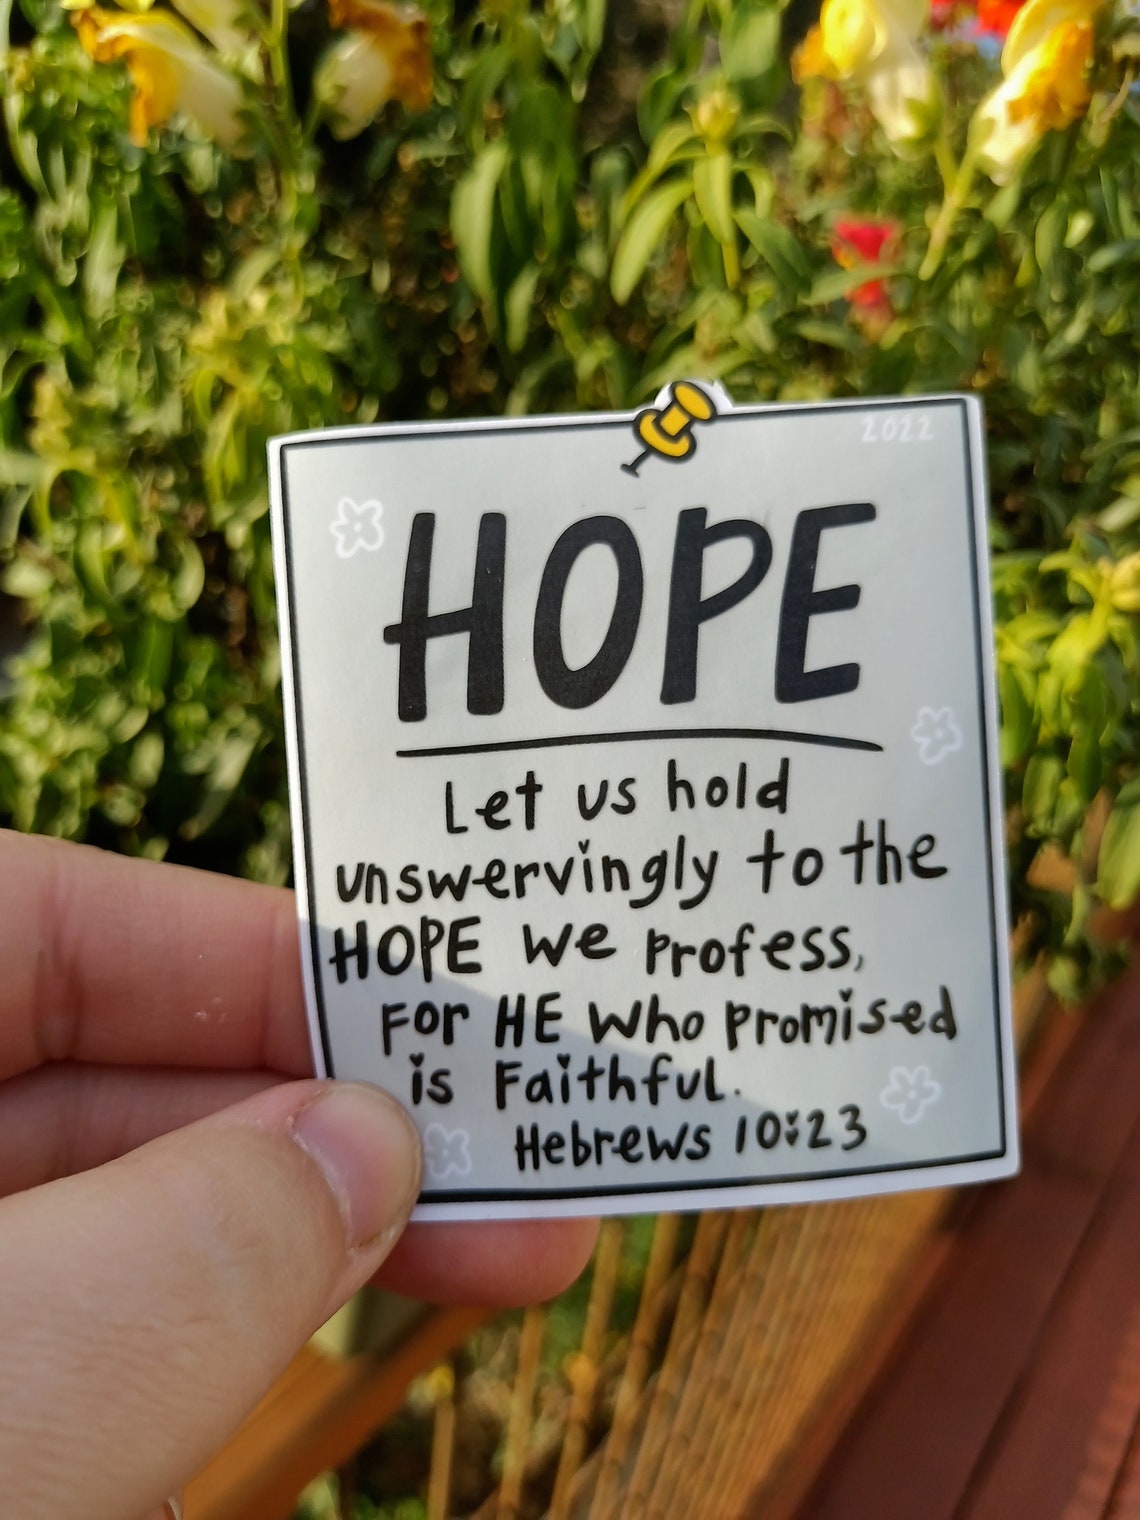 2022
HOPE
Let us hold
unswervingly to the
HOPE we profess,
For HE who promised
is Faithful.
Hebrews 10:23